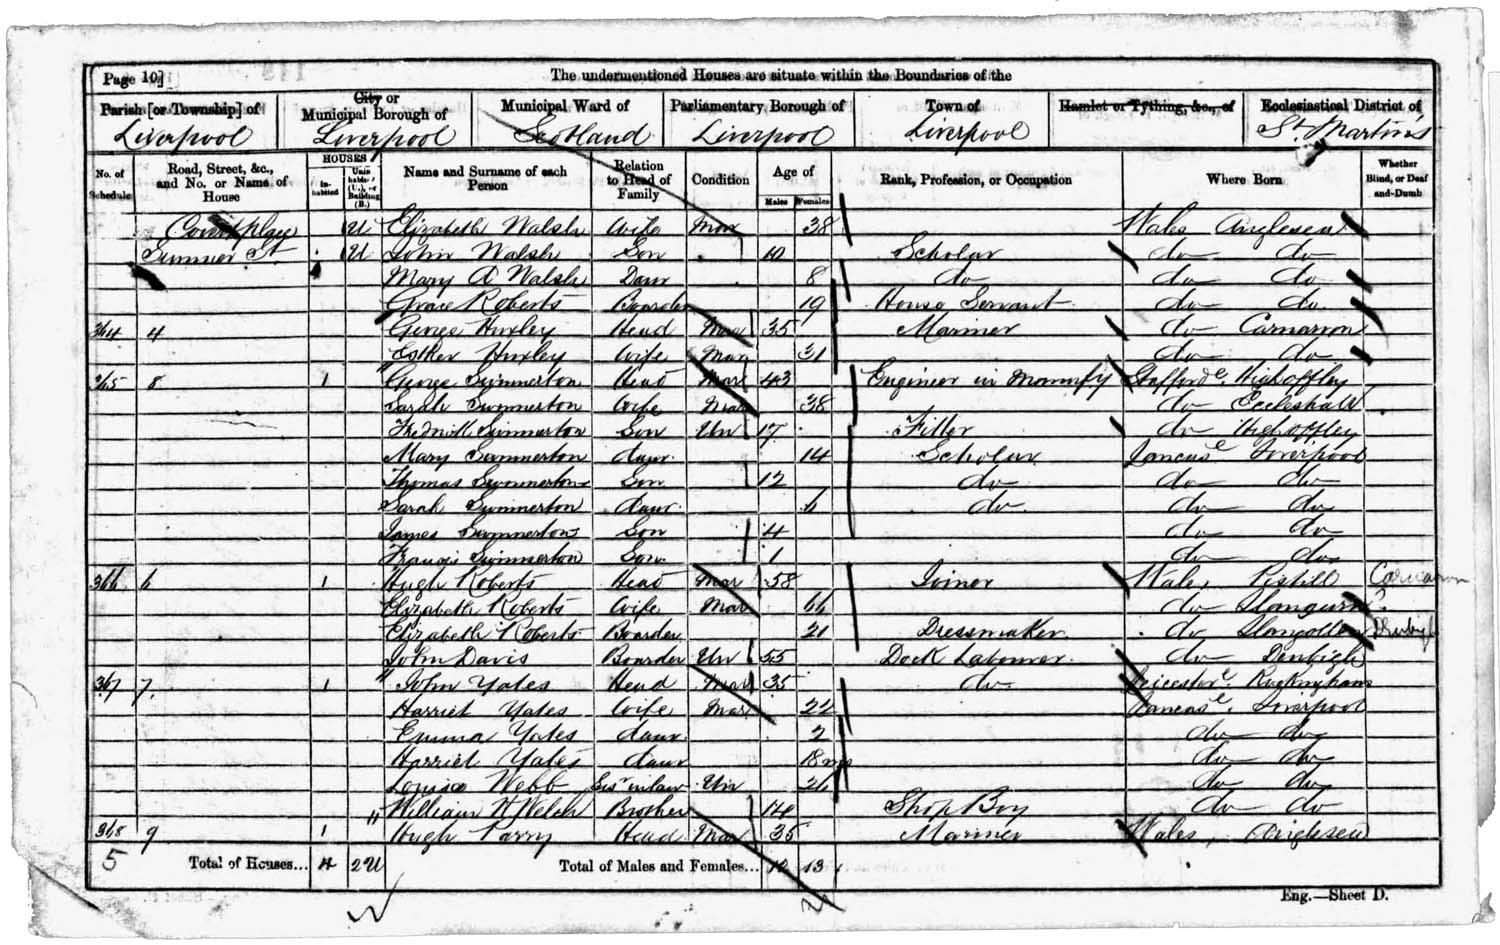 Page 10]
The undermentioned Houses are situate within the Boundaries of the
Parish [or Township] of
City or
Municipal Borough of
Municipal Ward of
Parliamentary Borough of
Town of
Hamlet or Tything, &c., of
Ecclesiastical District of
Liverpool Liverpool Scotland Liverpool Liverpool St Martins
No. of Schedule
Road, Street, &c., and No. or Name of House
HOUSES
In-habited
Unin-habited (U.), or Building (B.)
Name and Surname of each Person
Relation to Head of Family
Condition
Age of
Males Females
Rank, Profession, or Occupation
Where Born
Whether Blind, or Deaf-and-Dumb
U Elizabeth Walsh Wife Mar 38 Wales Anglesea
Summer St U John Walsh Son 10 Scholar do do
Mary A Walsh Daur 8 do do do
Grace Roberts Boarder 19 House Servant do do
364 4 George Huxley Head Mar 35 Mariner do Carnarvon
Esther Huxley Wife Mar 31 do do
365 8 1 George Swinnerton Head Mar 43 Engineer in Stafford e. High Offley
Sarah Swinnerton Wife Mar 38 do Eccleshall
Swinnerton Son Un 17 Fitter do High Offley
Mary Swinnerton daur. 14 Scholar Lancas e Liverpool
Thomas Swinnerton Son 12 do do do
Sarah Swinnerton daur. 6 do do do
James Swinnerton Son 4 do do
Francis Swinnerton Son 1 do do
366 6 1 Hugh Roberts Head Mar 58 Joiner Wales, Pistill Carnarvon
Elizabeth Roberts Wife Mar 66 do ?
Elizabeth Roberts Boarder 21 Dressmaker do Llangollen
John Davis Boarder Un 55 Dock Labourer do Denbigh
367 7. 1 John Yates Head Mar 35 do Leicester e
Harriet Yates Wife Mar 22 Lancas e. Liverpool
Emma Yates daur. 2 do do
Harriet Yates daur 18 mos do do
Louisa Webb Sisr in law Un 26 do do
William H Welch Brother 14 Shop Boy do do
368 9 1 Hugh Parry Head Mar 35 Mariner Wales, Anglesea
5 Total of Houses... 4 2U Total of Males and Females... 12 13
Eng.—Sheet D.